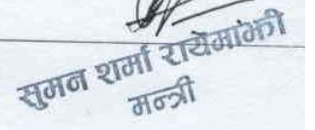 सुमन शर्मा रायमाझी
मन्त्री